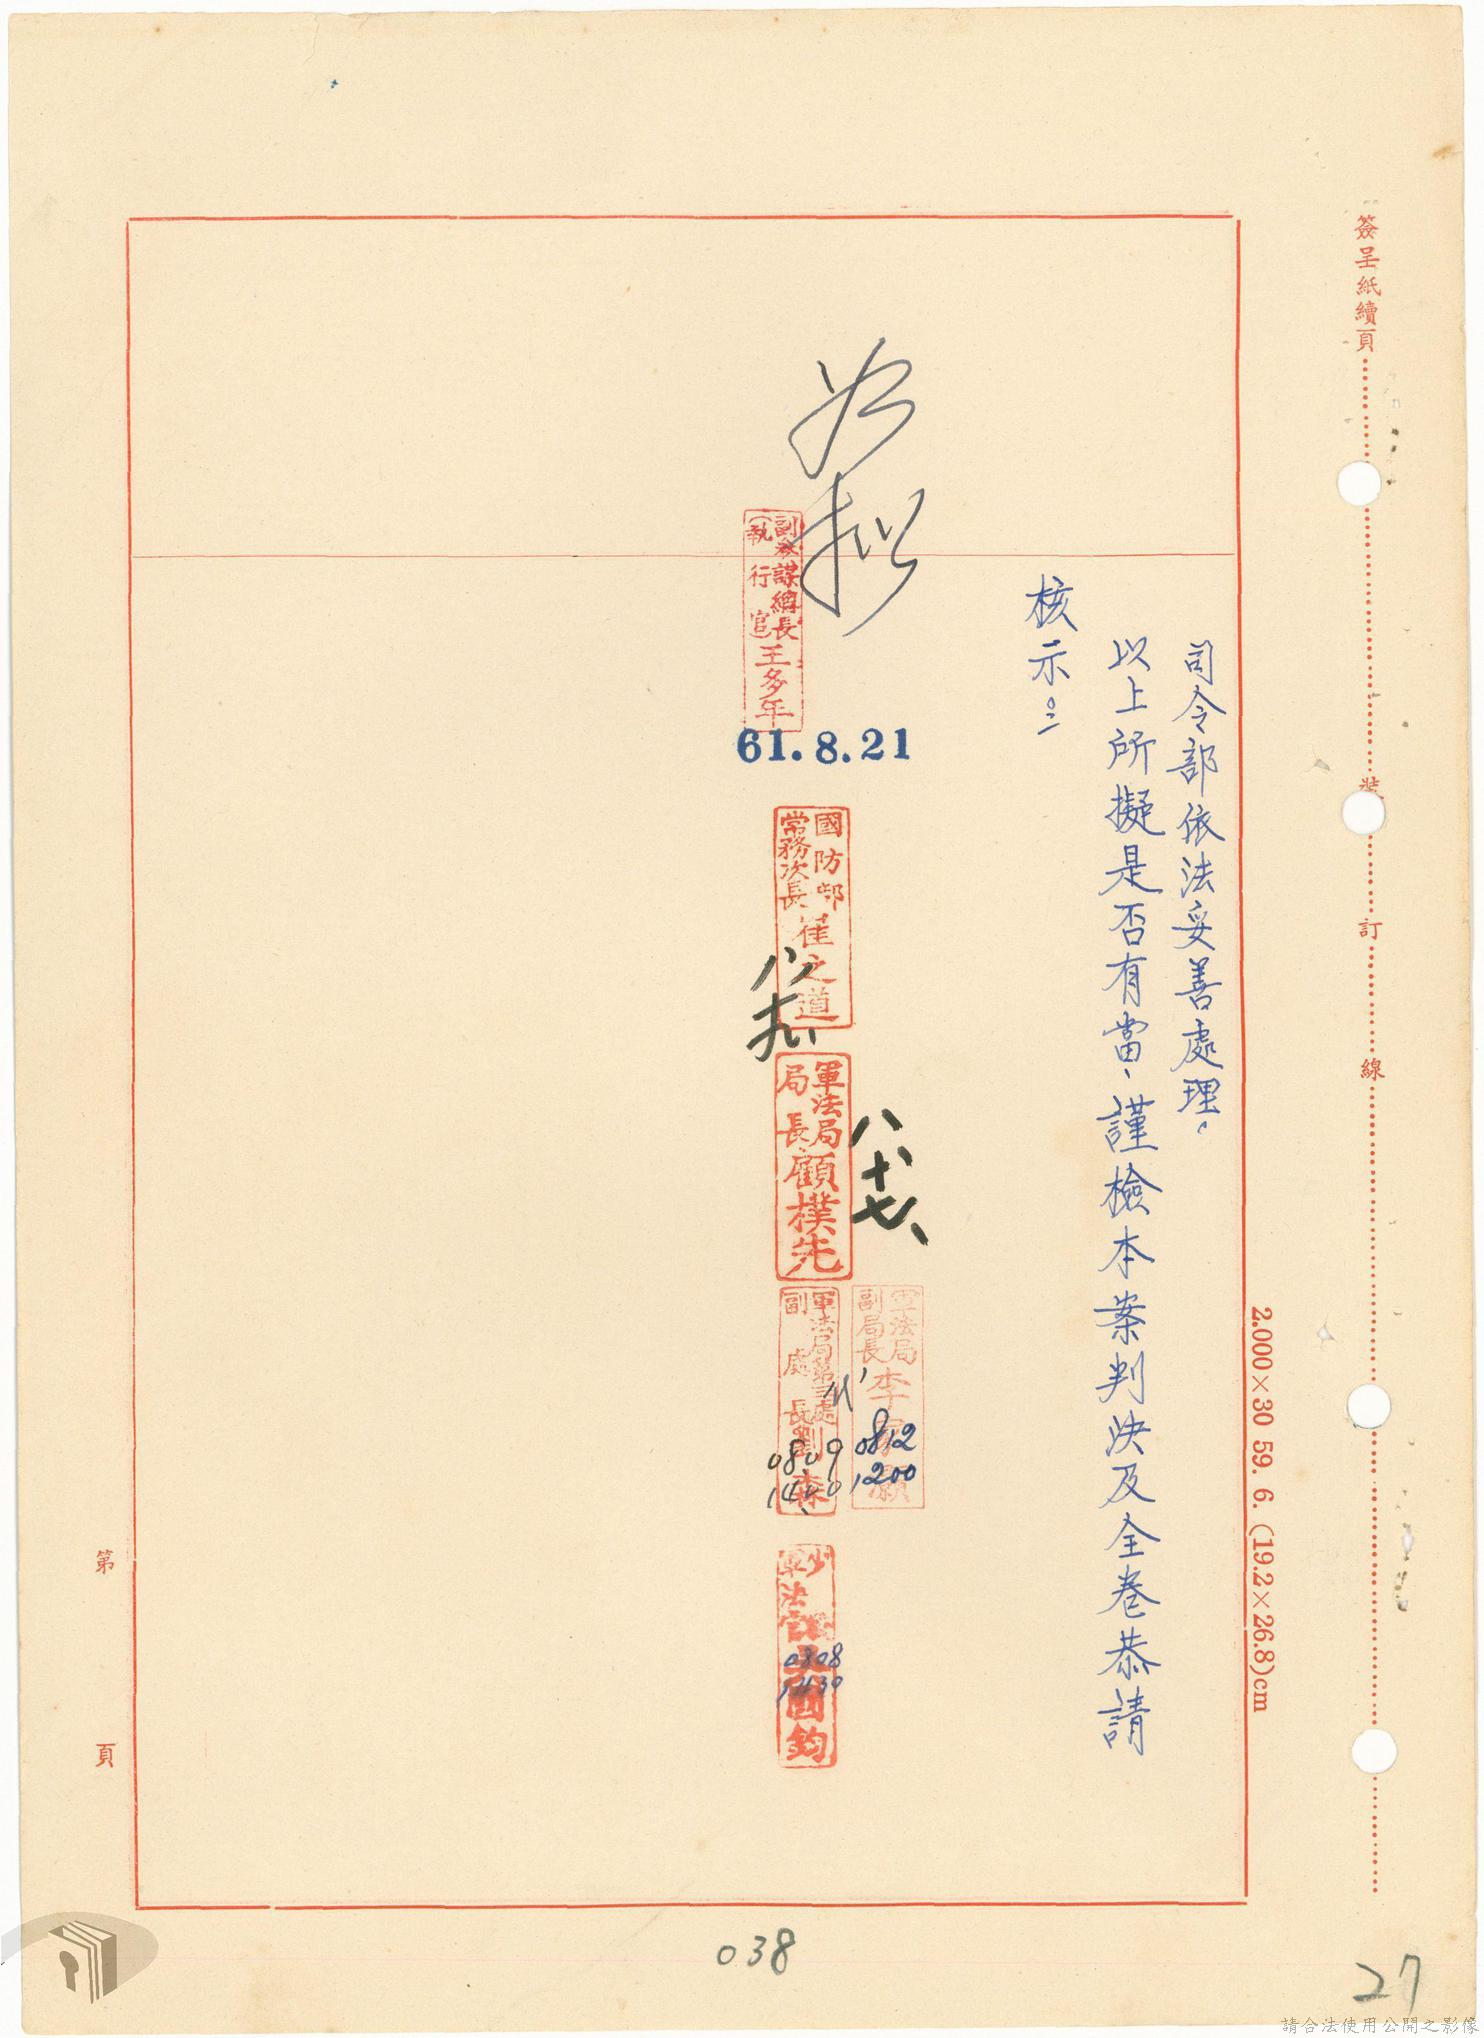 簽呈紙續頁
裝
訂
線
2.000×30 59. 6. (19.2×26.8)cm
司令部依法妥善處理。
以上所擬是否有當、謹檢本案判決及全卷恭請
核示。
如擬
副參謀總長
(執行官)
王多年
61.8.21
國防部
常務次長
崔之道
軍法局
局長
顧樸先
八、十七、
軍法局
副局長
李
0812
1200
軍法局第三處
副處長
劉森
0809
少
軍法官
國鈞
0808
1430
第
頁
038
27
請合法使用公開之影像